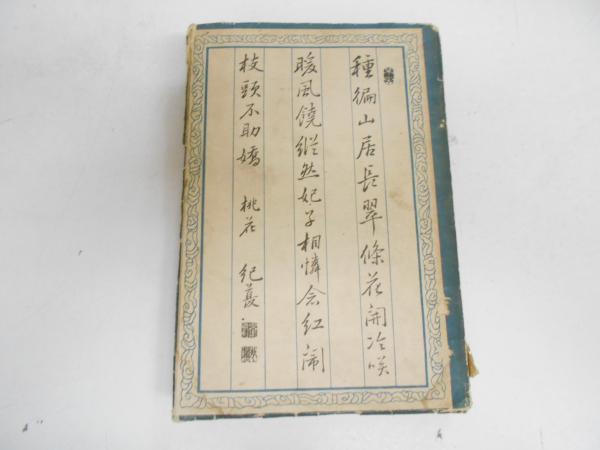 種徧山居長翠條花開冷咲
暖風饒縱然妃子相憐念紅鬧
枝頭不助嬌 桃花 紀蔓